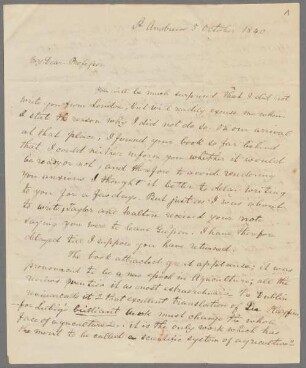 St Andrews 3 October 1840
My Dear Professor
You must be much surprised that I did not
write you from London, but will readily excuse me when
I state the reason why I did not do so. On our arrival
at that place, I found your book so far behind
that I could neither inform you whether it would
be ready or not, and therefore to avoid rendering
you anxious I thought it better to delay writing
to you for a few days. But just as I was about
to write, Taylor and Walton received your note
saying you were to leave Giessen. I have therefore
delayed till I suppose you have returned.
The book attracted great applause; it was
pronounced to be a new epoch in Agriculture; all the
reviews praise it as most extraordinary. The Dublin
announces it "That excellent translation of Dr. Playfair
for Liebig's brilliant book must change the whole
face of agriculture. It is the only work which has
the merit to be called a scientific system of agriculture."